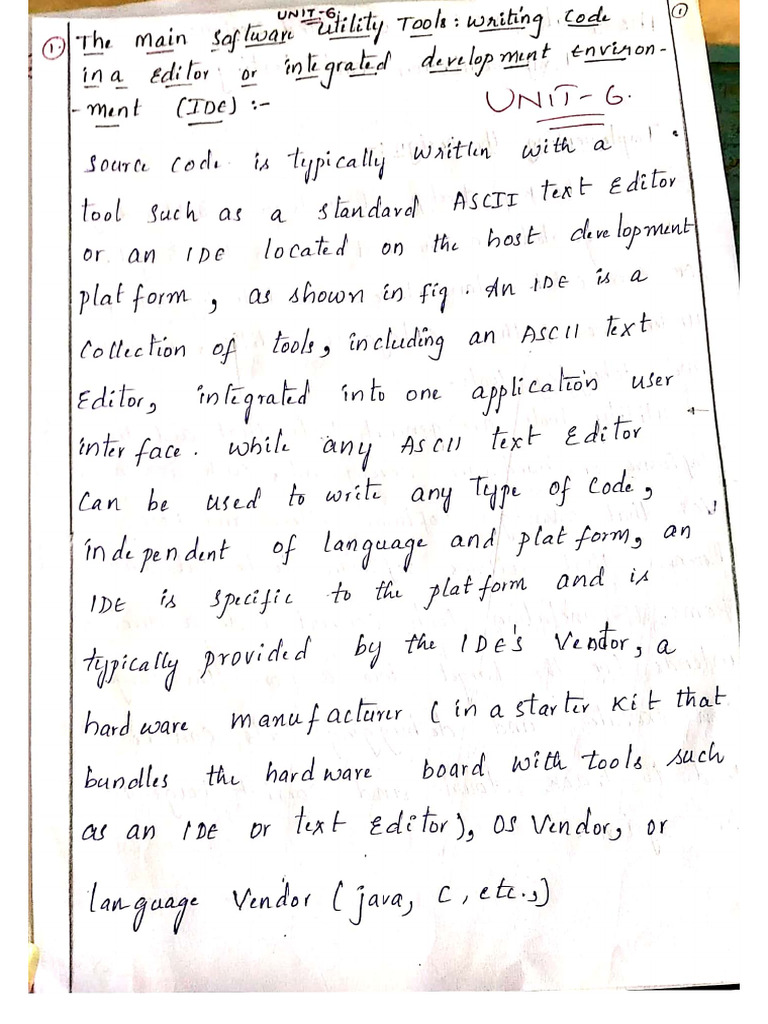 UNIT-6
① The main software utility Tools: writing code ①
in a Editor or integrated development environ-
-ment (IDE) :-
UNIT-6.
source code is typically written with a
tool such as a standard ASCII text Editor
or an IDE located on the host development
platform, as shown in fig. An IDE is a
Collection of tools, including an ASCII text
Editor, integrated into one application user
interface. while any ASCII text Editor
Can be used to write any type of code,
independent of language and platform, an
IDE is specific to the platform and is
typically provided by the IDE's Vendor, a
hardware manufacturer (in a starter kit that
bundles the hardware board with tools such
as an IDE or text Editor), OS Vendor, or
language Vendor (java, C, etc.,)